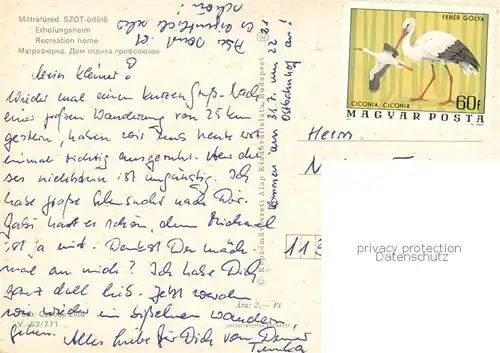 Mátrafüred SZOT-üdülő
Erholungsheim
Recreation home
Матрафюред. Дом отдыха профсоюзов
Mein Kleiner!
Wieder mal einen kurzen Gruß. Nach
einer großen Wanderung von 25 km
gestern, haben wir uns heute erst
einmal richtig ausgeruht. Aber
ist ungünstig. Ich
habe große Sehnsucht nach Dir.
Gabi hat es schön, denn Michael
ist ja mit. Denkst Du manch-
mal an mich? Ich habe Dich
ganz doll lieb. Jetzt werden
wir wieder ein bißchen wandern
gehen.
Alles Liebe für Dich von Deiner
Kommen am 31.7. um 22
Ostbahnhof an!
© Képzőművészeti Alap Kiadóvállalata, Budapest
Ára: 2,— Ft
OFFSET-NYOMDA BUDAPEST
V.-52/771
FEHÉR GÓLYA
CICONIA CICONIA
60f
MAGYAR POSTA
Herrn
11
privacy protection
Datenschutz